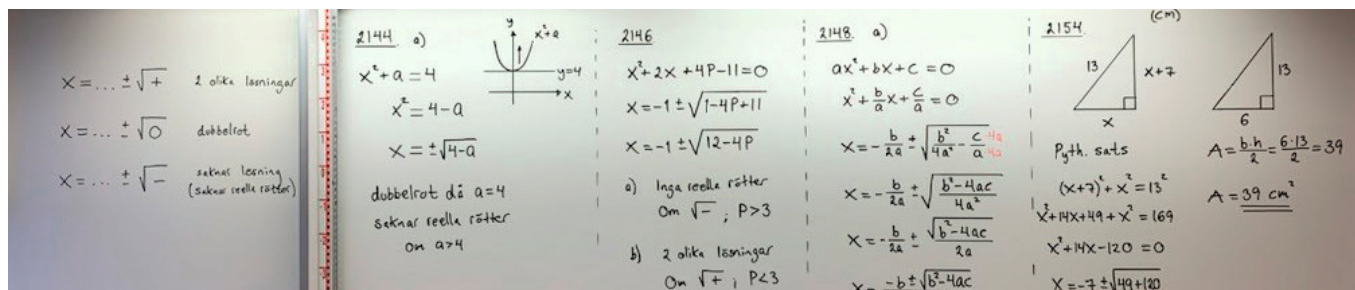 x = ... ± √+  2 olika lösningar
x = ... ± √0  dubbelrot
x = ... ± √−  saknar lösning
(saknar reella rötter)
2144. a)
y
x²+a
y=4
x
x² + a = 4
x² = 4 − a
x = ±√4−a
dubbelrot då a=4
saknar reella rötter
om a>4
2146
x² + 2x + 4P − 11 = 0
x = −1 ± √1−4P+11
x = −1 ± √12−4P
a) Inga reella rötter
Om √− ; P>3
b) 2 olika lösningar
Om √+ ; P<3
2148. a)
ax² + bx + c = 0
x² + b/a x + c/a = 0
x = − b/2a ± √b²/4a² − c/a ·4a/·4a
x = − b/2a ± √b²−4ac/4a²
x = − b/2a ± √b²−4ac/2a
x = −b ± √b²−4ac
2154.
(cm)
13
x+7
x
13
6
Pyth. sats
(x+7)² + x² = 13²
x² + 14x + 49 + x² = 169
x² + 14x − 120 = 0
x = −7 ± √49+120
A = b·h/2 = 6·13/2 = 39
A = 39 cm²